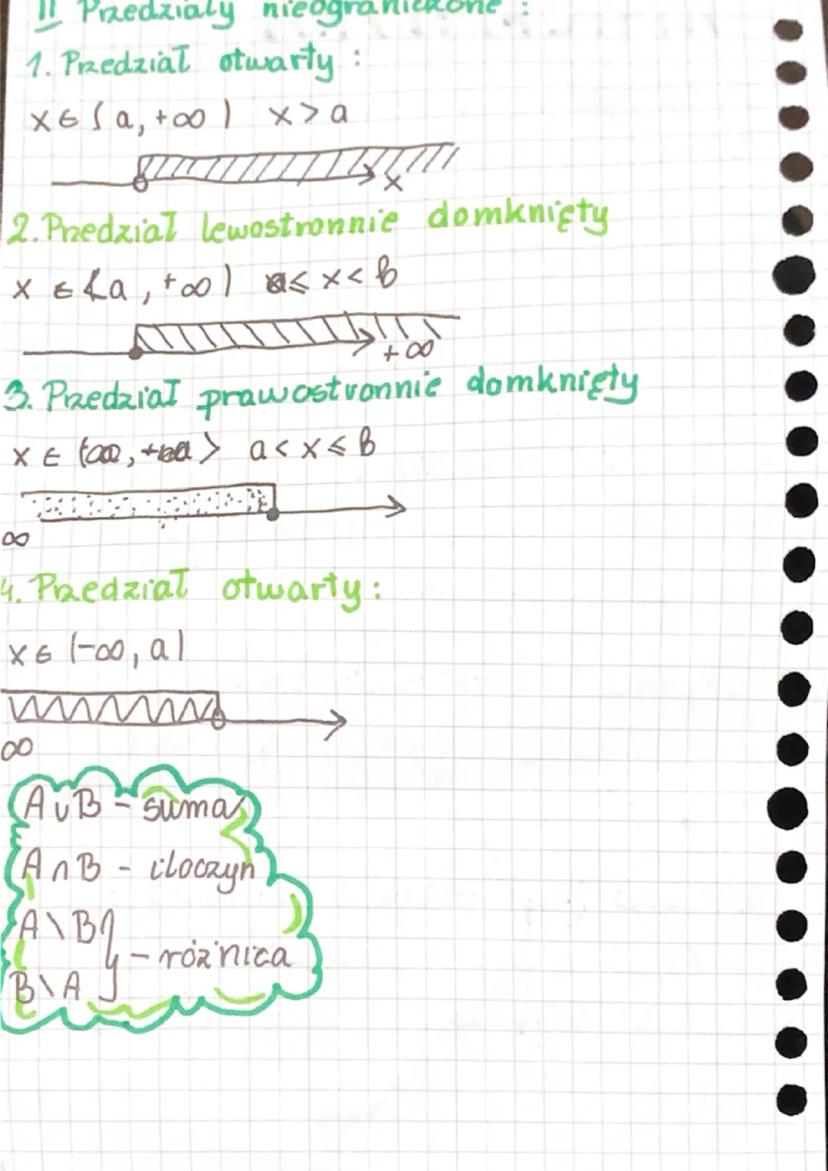 II Przedziały nieograniczone :
1. Przedział otwarty :
x ∈ ( a, +∞ ) x > a
x
2. Przedział lewostronnie domknięty
x ∈ ⟨a , +∞ ) a ≤ x < b
+ ∞
3. Przedział prawostronnie domknięty
x ∈ a < x ≤ b
∞
4. Przedział otwarty :
x ∈ (-∞, a)
∞
A ∪ B - suma
A ∩ B - iloczyn
A \ B
- różnica
B \ A